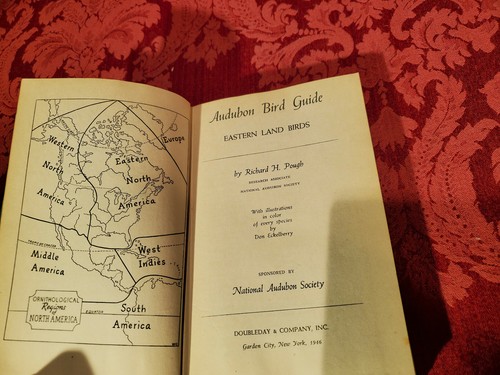 Western
North
America
Eastern
North
America
Europe
TROPIC OF CANCER
Middle
America
West
Indies
EQUATOR
South
America
ORNITHOLOGICAL
Regions
of
NORTH AMERICA
Audubon Bird Guide
EASTERN LAND BIRDS
by Richard H. Pough
RESEARCH ASSOCIATE
NATIONAL AUDUBON SOCIETY
With illustrations
in color
of every species
by
Don Eckelberry
SPONSORED BY
National Audubon Society
DOUBLEDAY & COMPANY, INC.
Garden City, New York, 1946